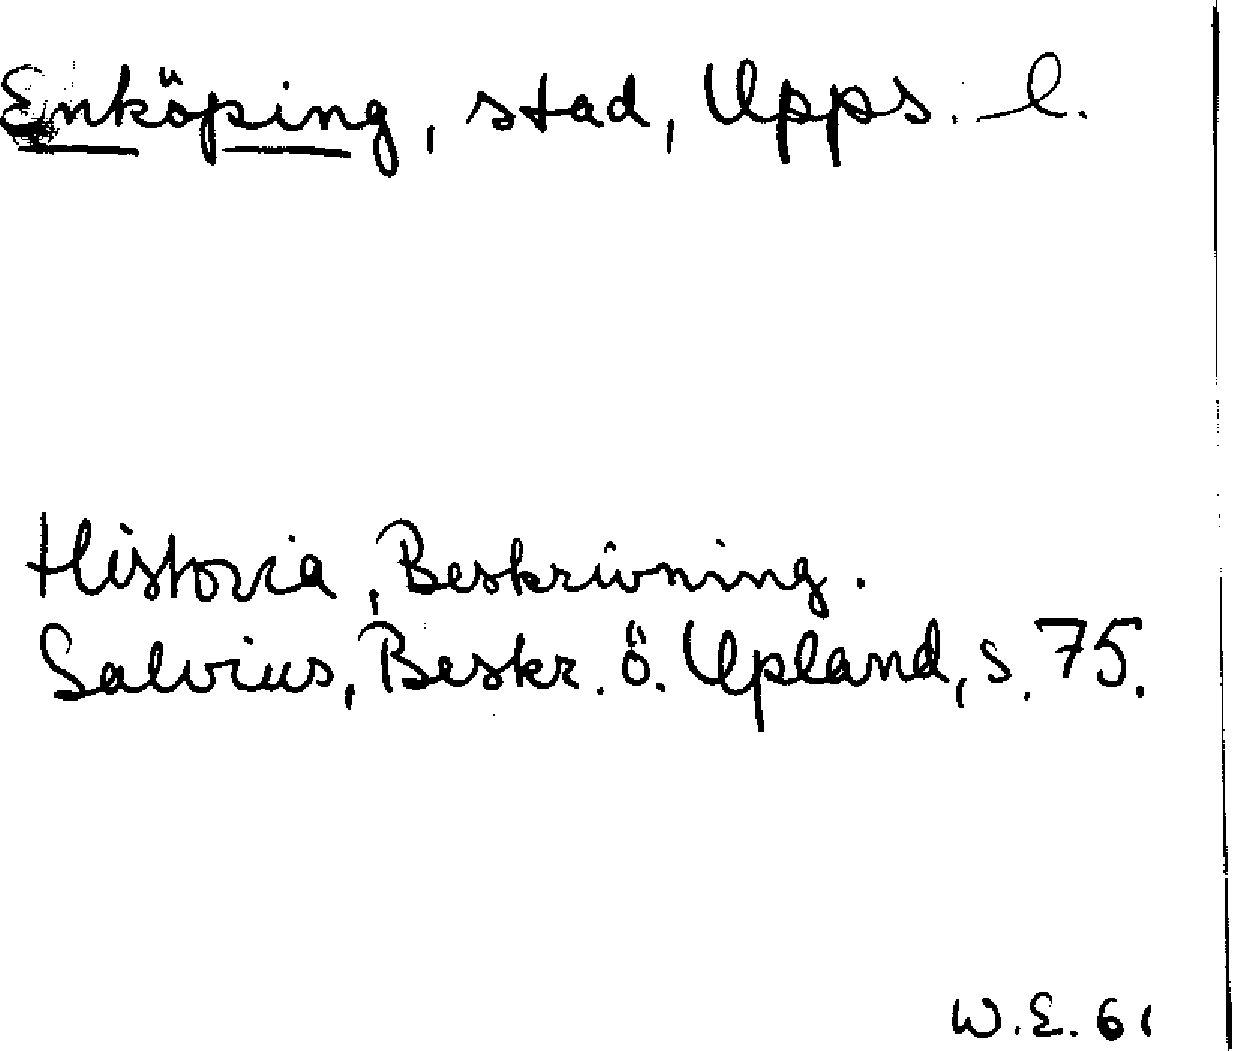 Enköping, stad, Upps. l.
Historia, Beskrivning.
Salvius, Beskr. ö. Upland, s. 75.
W.E. 61